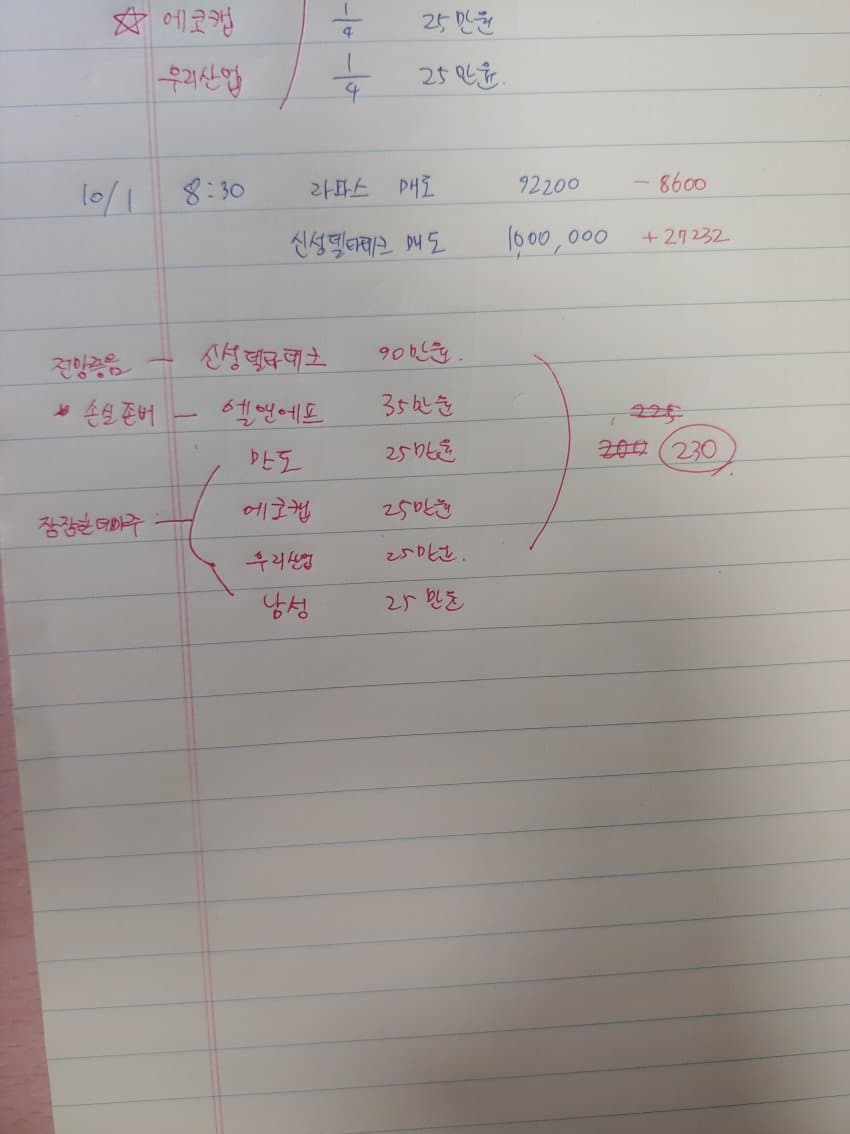 ☆ 에코캡 1/4 25만원
우리산업 1/4 25만원.
10/1 8:30 라파스 매도 92200 -8600
신성델타테크 매도 1,000,000 +27232
전망좋음 - 신성델타테크 90만원.
손실존버 - 엘앤에프 35만원
225
만도 25만원
200 230
에코캡 25만원
잠잠한테마주
우리산업 25만원.
남성 25만원